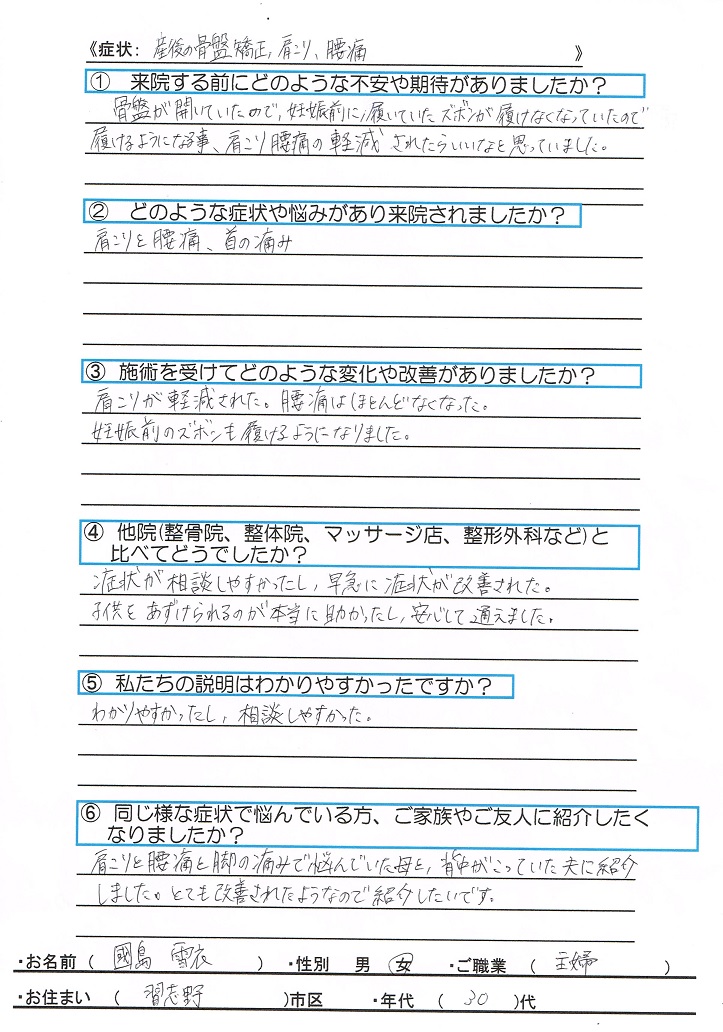 《症状： 産後の骨盤矯正，肩こり、腰痛 》
① 来院する前にどのような不安や期待がありましたか？
骨盤が開いていたので，妊娠前に履いていたズボンが履けなくなっていたので
履けるようになる事、肩こり腰痛の軽減されたらいいなと思っていました。
② どのような症状や悩みがあり来院されましたか？
肩こりと腰痛、首の痛み
③ 施術を受けてどのような変化や改善がありましたか？
肩こりが軽減された。腰痛はほとんどなくなった。
妊娠前のズボンも履けるようになりました。
④ 他院(整骨院、整体院、マッサージ店、整形外科など)と
比べてどうでしたか？
症状が相談しやすかったし，早急に症状が改善された。
子供をあずけられるのが本当に助かったし，安心して通えました。
⑤ 私たちの説明はわかりやすかったですか？
わかりやすかったし，相談しやすかった。
⑥ 同じ様な症状で悩んでいる方、ご家族やご友人に紹介したく
なりましたか？
肩こりと腰痛と脚の痛みで悩んでいた母と，背中がこっていた夫に紹介
しました。とても改善されたようなので紹介したいです。
・お名前（ 國島 雪衣 ） ・性別 男 女 ・ご職業 （ 主婦 ）
・お住まい （ 習志野 ）市区 ・年代 （ 30 ）代